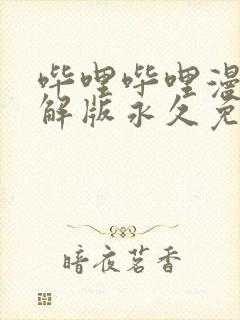 哔哩哔哩漫
解版永久免
暗夜茗香